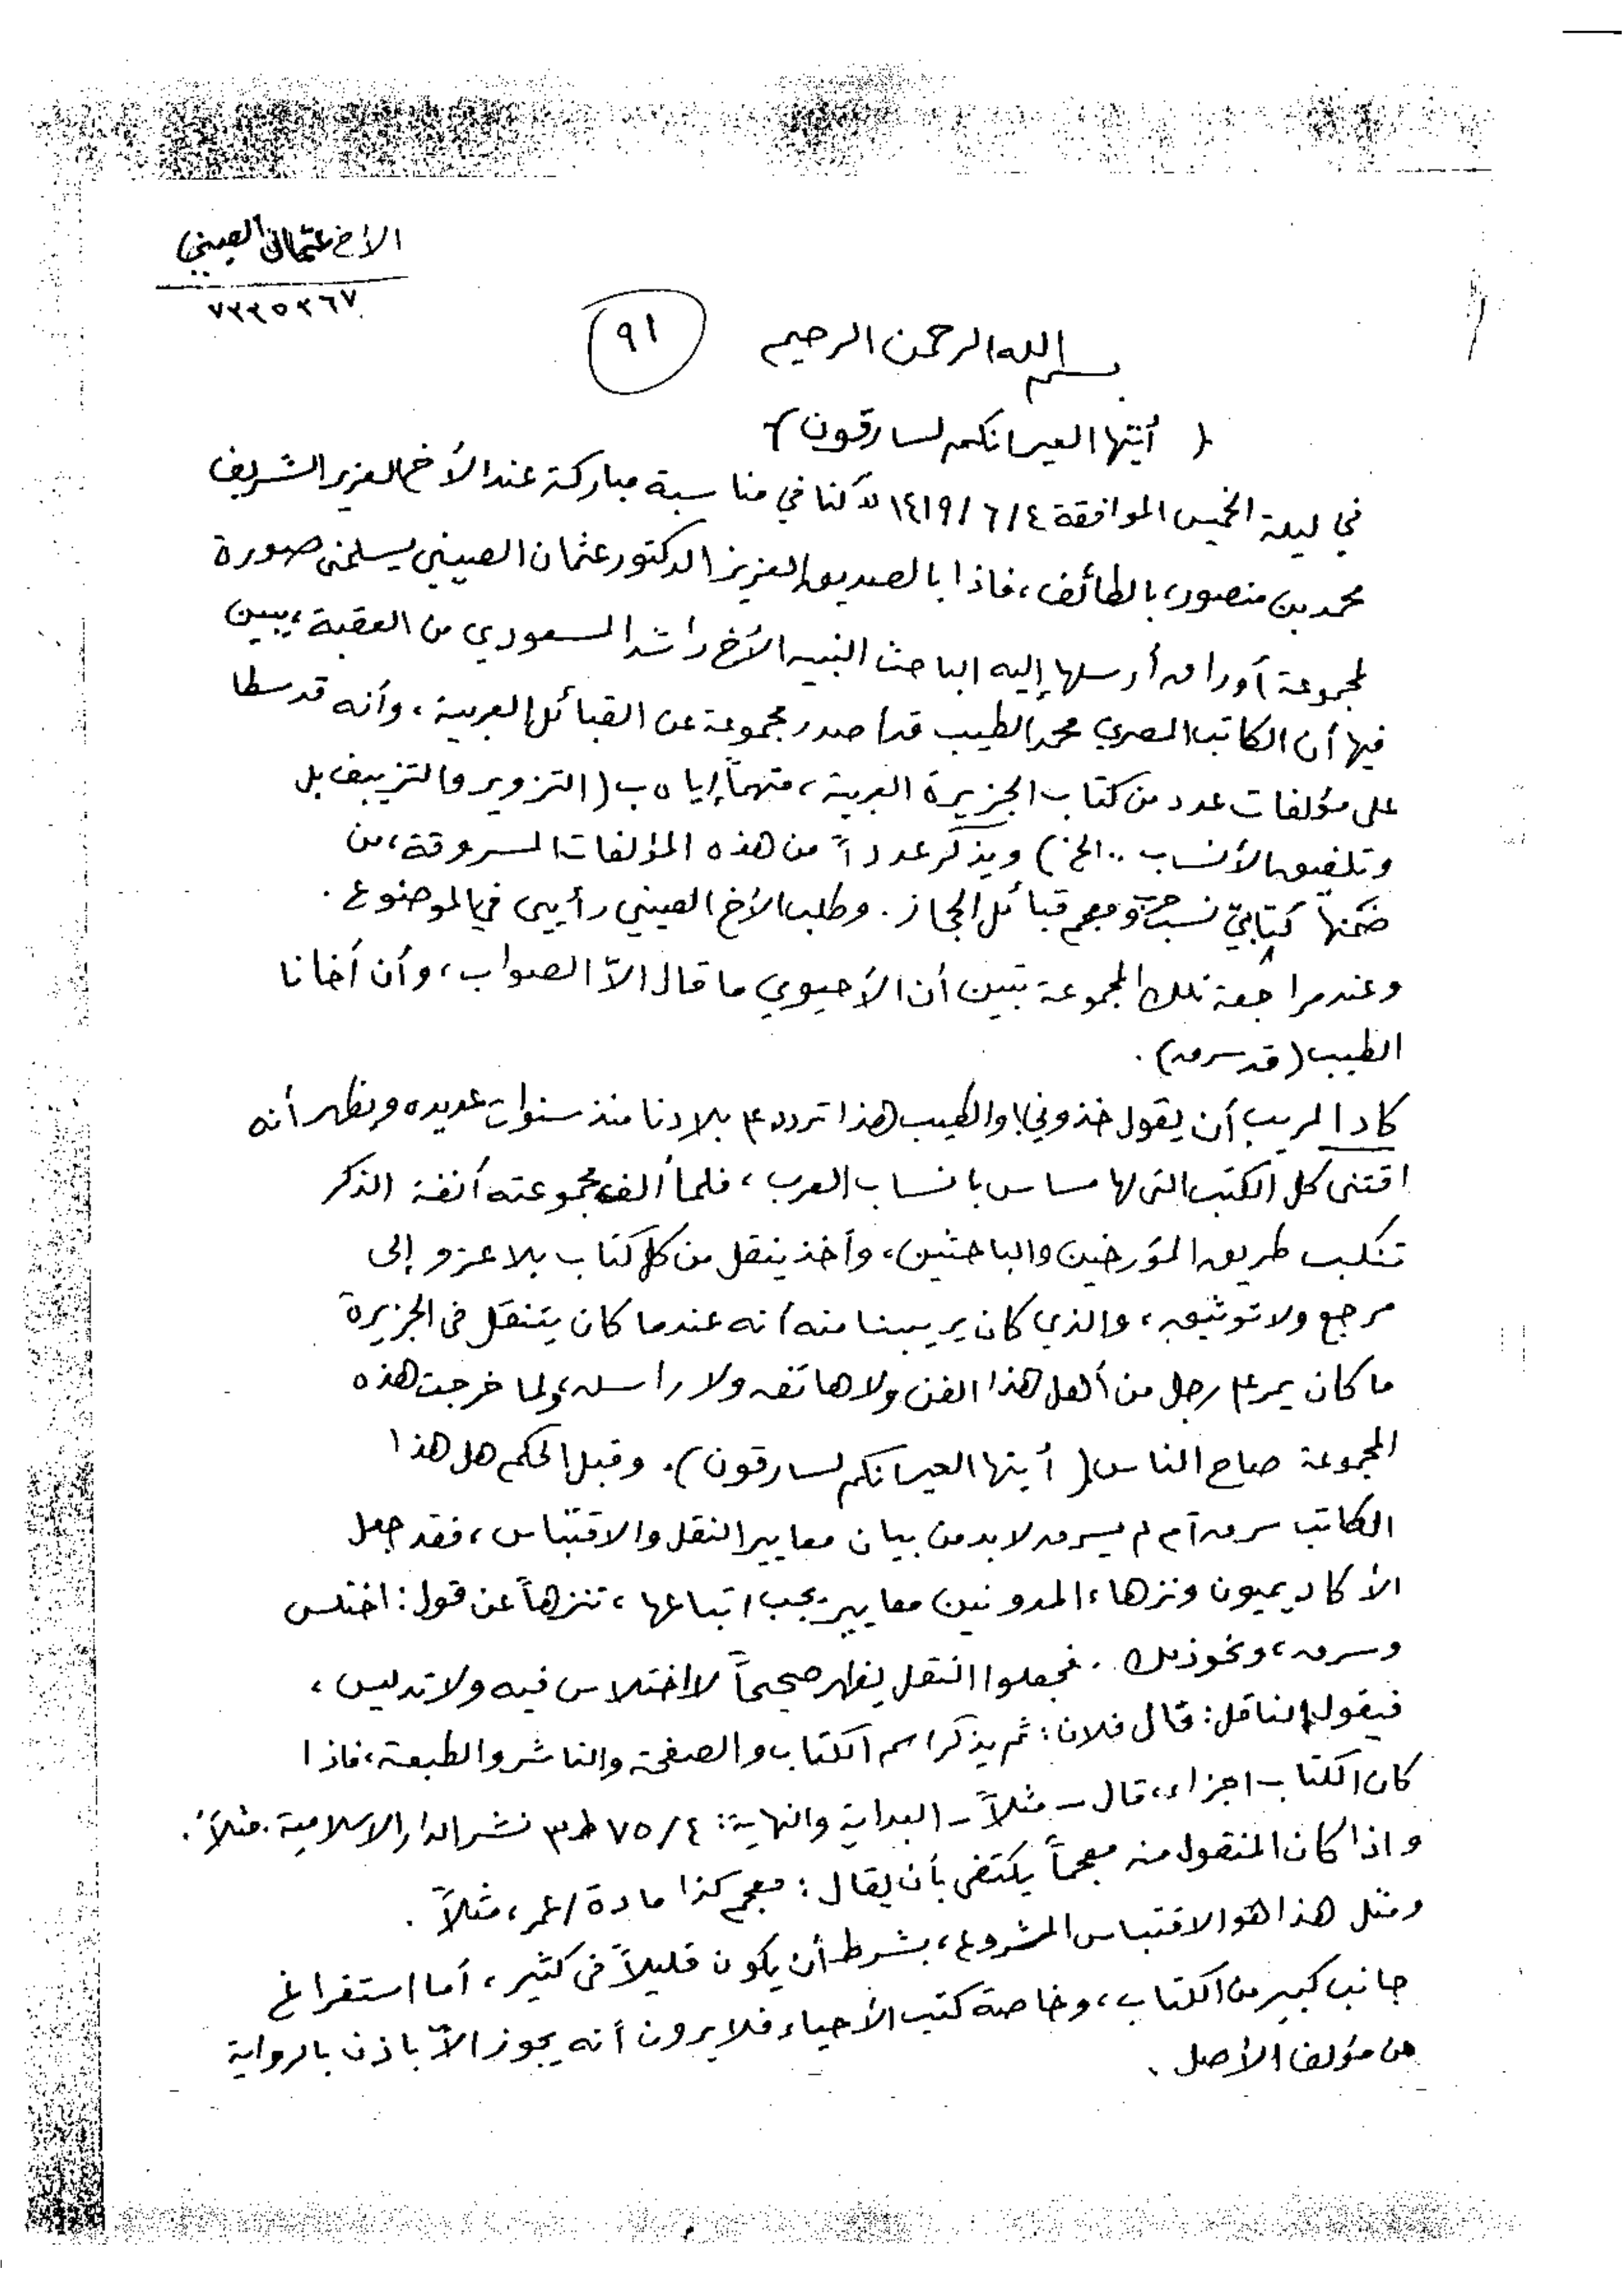 الأخ عثمان الصيني
٧٣٢٥٣٦٧
٩١
بسم الله الرحمن الرحيم
( أيتها العير انكم لسارقون )
في ليلة الخميس الموافقة ١٤١٩/٦/٤هـ كنا في مناسبة مباركة عند الأخ العزيز الشريف
محمد بن منصور، بالطائف، فاذا بالصديق العزيز الدكتور عثمان الصيني يسلمني صورة
لمجموعة أوراق أرسلها إليه الباحث النبيه الأخ راشد المسعودي من العقبة، يبين
فيها أن الكاتب المصري محمد الطيب قد اصدر مجموعة عن القبائل العربية، وأنه قد سطا
على مؤلفات عدد من كتاب الجزيرة العربية، متهماً إياه ب (التزوير والتزييف بل
وتلفيق الأنساب .. الخ) ويذكر عدداً من هذه المؤلفات المسروقة، من
ضمنها كتابيّ نسب حرب ومعجم قبائل الحجاز. وطلب الأخ الصيني رأيي في الموضوع.
وعند مراجعة تلك المجموعة تبين أن الأحيوي ما قال الاّ الصواب، وأن أخانا
الطيب (قد سرق).
كاد المريب أن يقول خذوني! والطيب هذا تردد ع بلادنا منذ سنوات عديده ويظهر أنه
اقتنى كل الكتب التي لها مساس بانساب العرب، فلما ألف مجموعته آنفة الذكر
تنكب طريق المؤرخين والباحثين، وأخذ ينقل من كل كتاب بلا عزو إلى
مرجع ولا توثيق، والذي كان يريبنا منه أنه عندما كان يتنقل في الجزيرة
ما كان يمر ع رجل من أهل هذا الفن ولا هاتفه ولا راسله، ولما خرجت هذه
المجموعة صاح الناس ( أيتها العير انكم لسارقون ). وقبل الحكم هل هذا
الكاتب سرق أم لم يسرق لابد من بيان معايير النقل والاقتباس، فقد جعل
الأكاديميون ونزهاء المدونين معايير يجب اتباعها، تنزهاً عن قول: اختلس
وسرق، ونحو ذلك. فجعلوا النقل يظهر صحيحاً لا اختلاس فيه ولا تدليس،
فيقول الناقل: قال فلان: ثم يذكر اسم الكتاب والصفحة والناشر والطبعة، فاذا
كان الكتاب اجزاء، قال - مثلاً - البداية والنهاية: ٧٥/٤ ط٣ نشر الدار الاسلامية. مثلاً.
واذا كان المنقول منه معجماً يكتفى بأن يقال: معجم كذا مادة / عمر، مثلاً.
ومثل هذا هو الاقتباس المشروع، بشرط أن يكون قليلاً في كثير، أما استفراغ
جانب كبير من الكتاب، وخاصة كتب الأحياء فلا يرون أنه يجوز الاّ باذن بالرواية
من مؤلف الأصل.